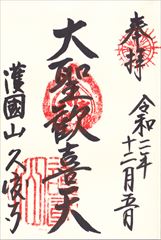 奉拝
令和二年
十二月五日
大聖歓喜天
護國山久渡寺